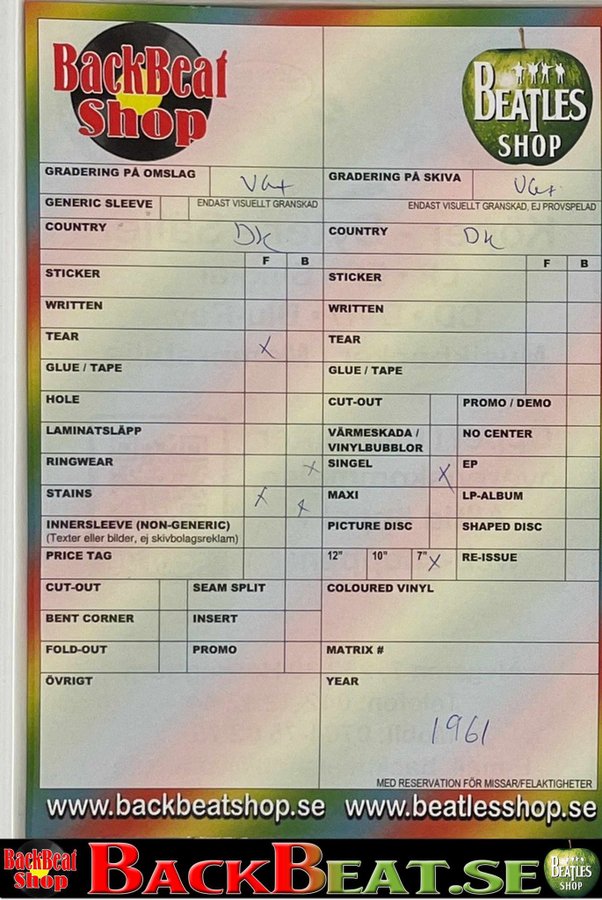 BackBeat
Shop
BEATLES
SHOP
GRADERING PÅ OMSLAG VG+
GRADERING PÅ SKIVA VG+
GENERIC SLEEVE
ENDAST VISUELLT GRANSKAD
ENDAST VISUELLT GRANSKAD, EJ PROVSPELAD
COUNTRY DK
COUNTRY DK
F B
F B
STICKER
STICKER
WRITTEN
WRITTEN
TEAR X
TEAR
GLUE / TAPE
GLUE / TAPE
HOLE
CUT-OUT
PROMO / DEMO
LAMINATSLÄPP
VÄRMESKADA /
VINYLBUBBLOR
NO CENTER
RINGWEAR X
SINGEL X
EP
STAINS X X
MAXI
LP-ALBUM
INNERSLEEVE (NON-GENERIC)
(Texter eller bilder, ej skivbolagsreklam)
PICTURE DISC
SHAPED DISC
PRICE TAG
12" 10" 7" X
RE-ISSUE
CUT-OUT
SEAM SPLIT
COLOURED VINYL
BENT CORNER
INSERT
FOLD-OUT
PROMO
MATRIX #
ÖVRIGT
YEAR
1961
MED RESERVATION FÖR MISSAR/FELAKTIGHETER
www.backbeatshop.se www.beatlesshop.se
BackBeat
Shop
BACKBEAT.SE
BEATLES
SHOP